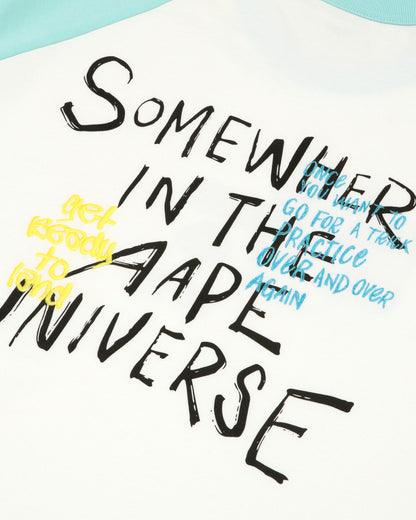 SOMEWHER
IN THE
AAPE
UNIVERSE
get
ready
to
land
ONCE
YOU WANT TO
GO FOR A TREK
PRACTICE
OVER AND OVER
AGAIN